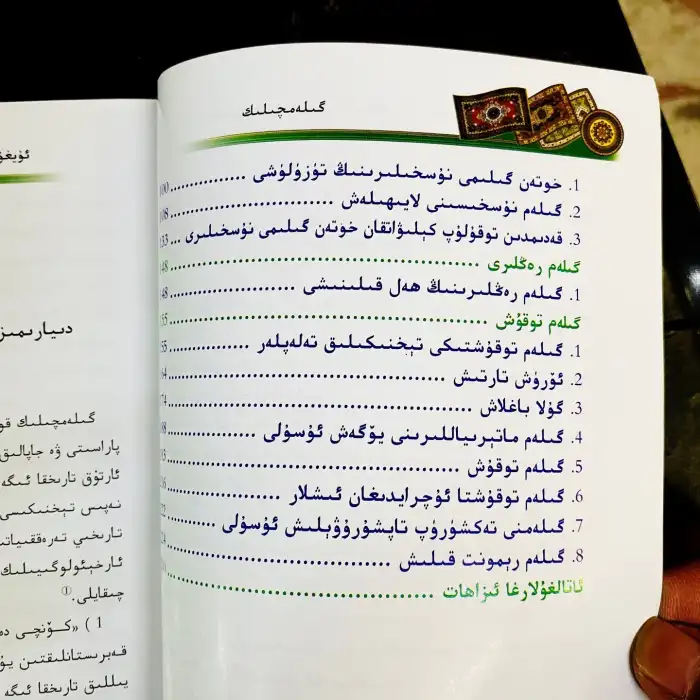 گىلەمچىلىك
1. خوتەن گىلىمى نۇسخىلىرىنىڭ تۈزۈلۈشى ................ 100
2. گىلەم نۇسخىسىنى لايىھىلەش ........................ 108
3. قەدىمدىن توقۇلۇپ كېلىۋاتقان خوتەن گىلىمى نۇسخىلىرى ... 133
گىلەم رەڭلىرى ........................................
1. گىلەم رەڭلىرىنىڭ ھەل قىلىنىشى ........................
گىلەم توقۇش ........................................
1. گىلەم توقۇشتىكى تېخنىكىلىق تەلەپلەر ................
2. ئۆرۈش تارتىش ........................................
3. گۇلا باغلاش ........................................
4. گىلەم ماتېرىياللىرىنى يۆگەش ئۇسۇلى ................
5. گىلەم توقۇش ........................................
6. گىلەم توقۇشتا ئۇچرايدىغان ئىشلار ................
7. گىلەمنى تەكشۈرۈپ تاپشۇرۇۋېلىش ئۇسۇلى ............
8. گىلەم رېمونت قىلىش ................................
ئاتالغۇلارغا ئىزاھات ................................
دىيارىمىز
گىلەمچىلىك
پاراسىتى ۋە جاپالىق
ئارتۇق تارىخقا ئىگە
نەپىس تېخنىكىسى
تارىخىي
ئارخېئولوگىيىلىك
چىقايلى.①
1 ) «كۆنچى
قەبرىستانلىقتىن
يىللىق تارىخقا ئىگە